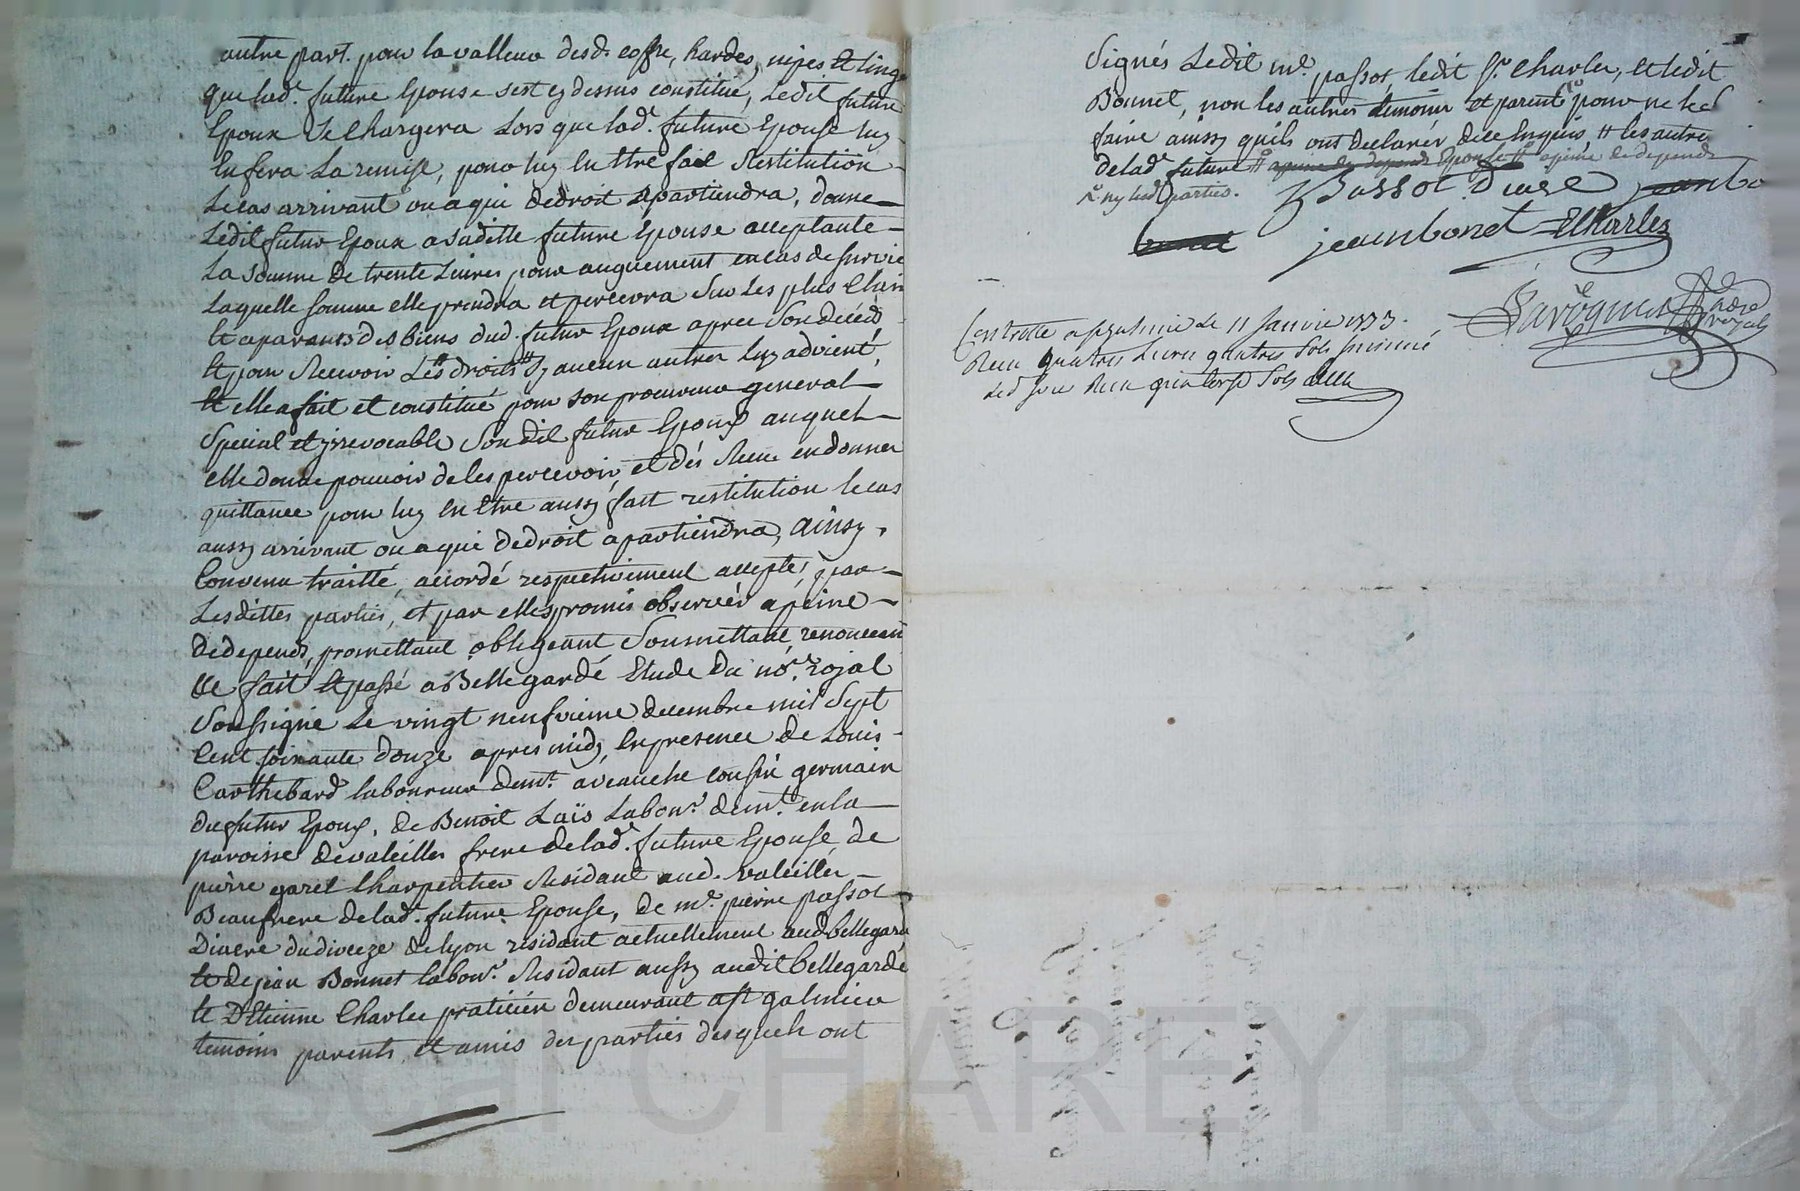 autre part. pour la valleur desd. coffre, hardes, nipes et linge
que lad. future Epouse sest cy dessus constitué, Ledit future
Epoux Se Chargera Lors que lad. future Epouse luy
En fera La remise, pour luy En Etre fait Restitution
Le cas arrivant ou a qui de droit apartiendra, donne
Ledit futur Epoux a saditte future Epouse acceptante
La Somme De trente Livres pour auguement en cas de survie
Laquelle Somme elle prendra et percevra Sur Les plus Clair
Et aparants des biens dud. futur Epoux apres Son décéd
Et pour Recevoir Les droits sy aucun autres luy advient,
Et elle a fait et constitué pour son procureur general
Special et jrrevocable Son dit futur Epoux auquel
elle donne pouvoir de les percevoir, et dés Receu en donner
quittance pour luy En Etre aussy fait restitution le cas
aussy arrivant ou a qui de droit apartiendra, ainsy
Convenu traitté, accordé respectivement accepté, par
Lesdittes parties, et par elles promis observer a peine
de depends, promettant obligeant Soumettant, renonceant
fait Et passé a Bellegarde Etude du no.re rojal
Soussigné Le vingt neufvieme decembre mil Sept
Cent soixante douze apres midy, En presence de Louis
Carthebard laboureur dem.t aveauche cousin germain
du futur Epoux, de Benoit Laïs Labour. dem.t en la
paroisse de valeilles frere de lad. future Epouse, de
pierre garel Charpentier Residant aud. valeilles
Beaufrere de lad. future Epouse, de m.e pierre passot
Diacre du diocèze de lyon residant actuellement aud bellegarde
Et de jean Bonnet labour. Residant aussy audit bellegarde
et D'Etienne Charles praticien demeurant a st galmier
temoins parents, et amis des parties desquels ont
Signés Ledit m.e passot, ledit S.r Charles, et ledit
Bonnet, non les autres temoins et parents pour ne le
faire ainsy quils ont declarés de ce Enquis, # les autres
de lad. future # a peine de depends Epouse # a peine de depends
ny lesd. parties.
Passot Diacre jean bo
bonet
jean bonet ECharles
Lavoignes
no.re royal
Controllé a st galmier Le 11 Janvier 1773.
Receu quatres Livres quatres Sols